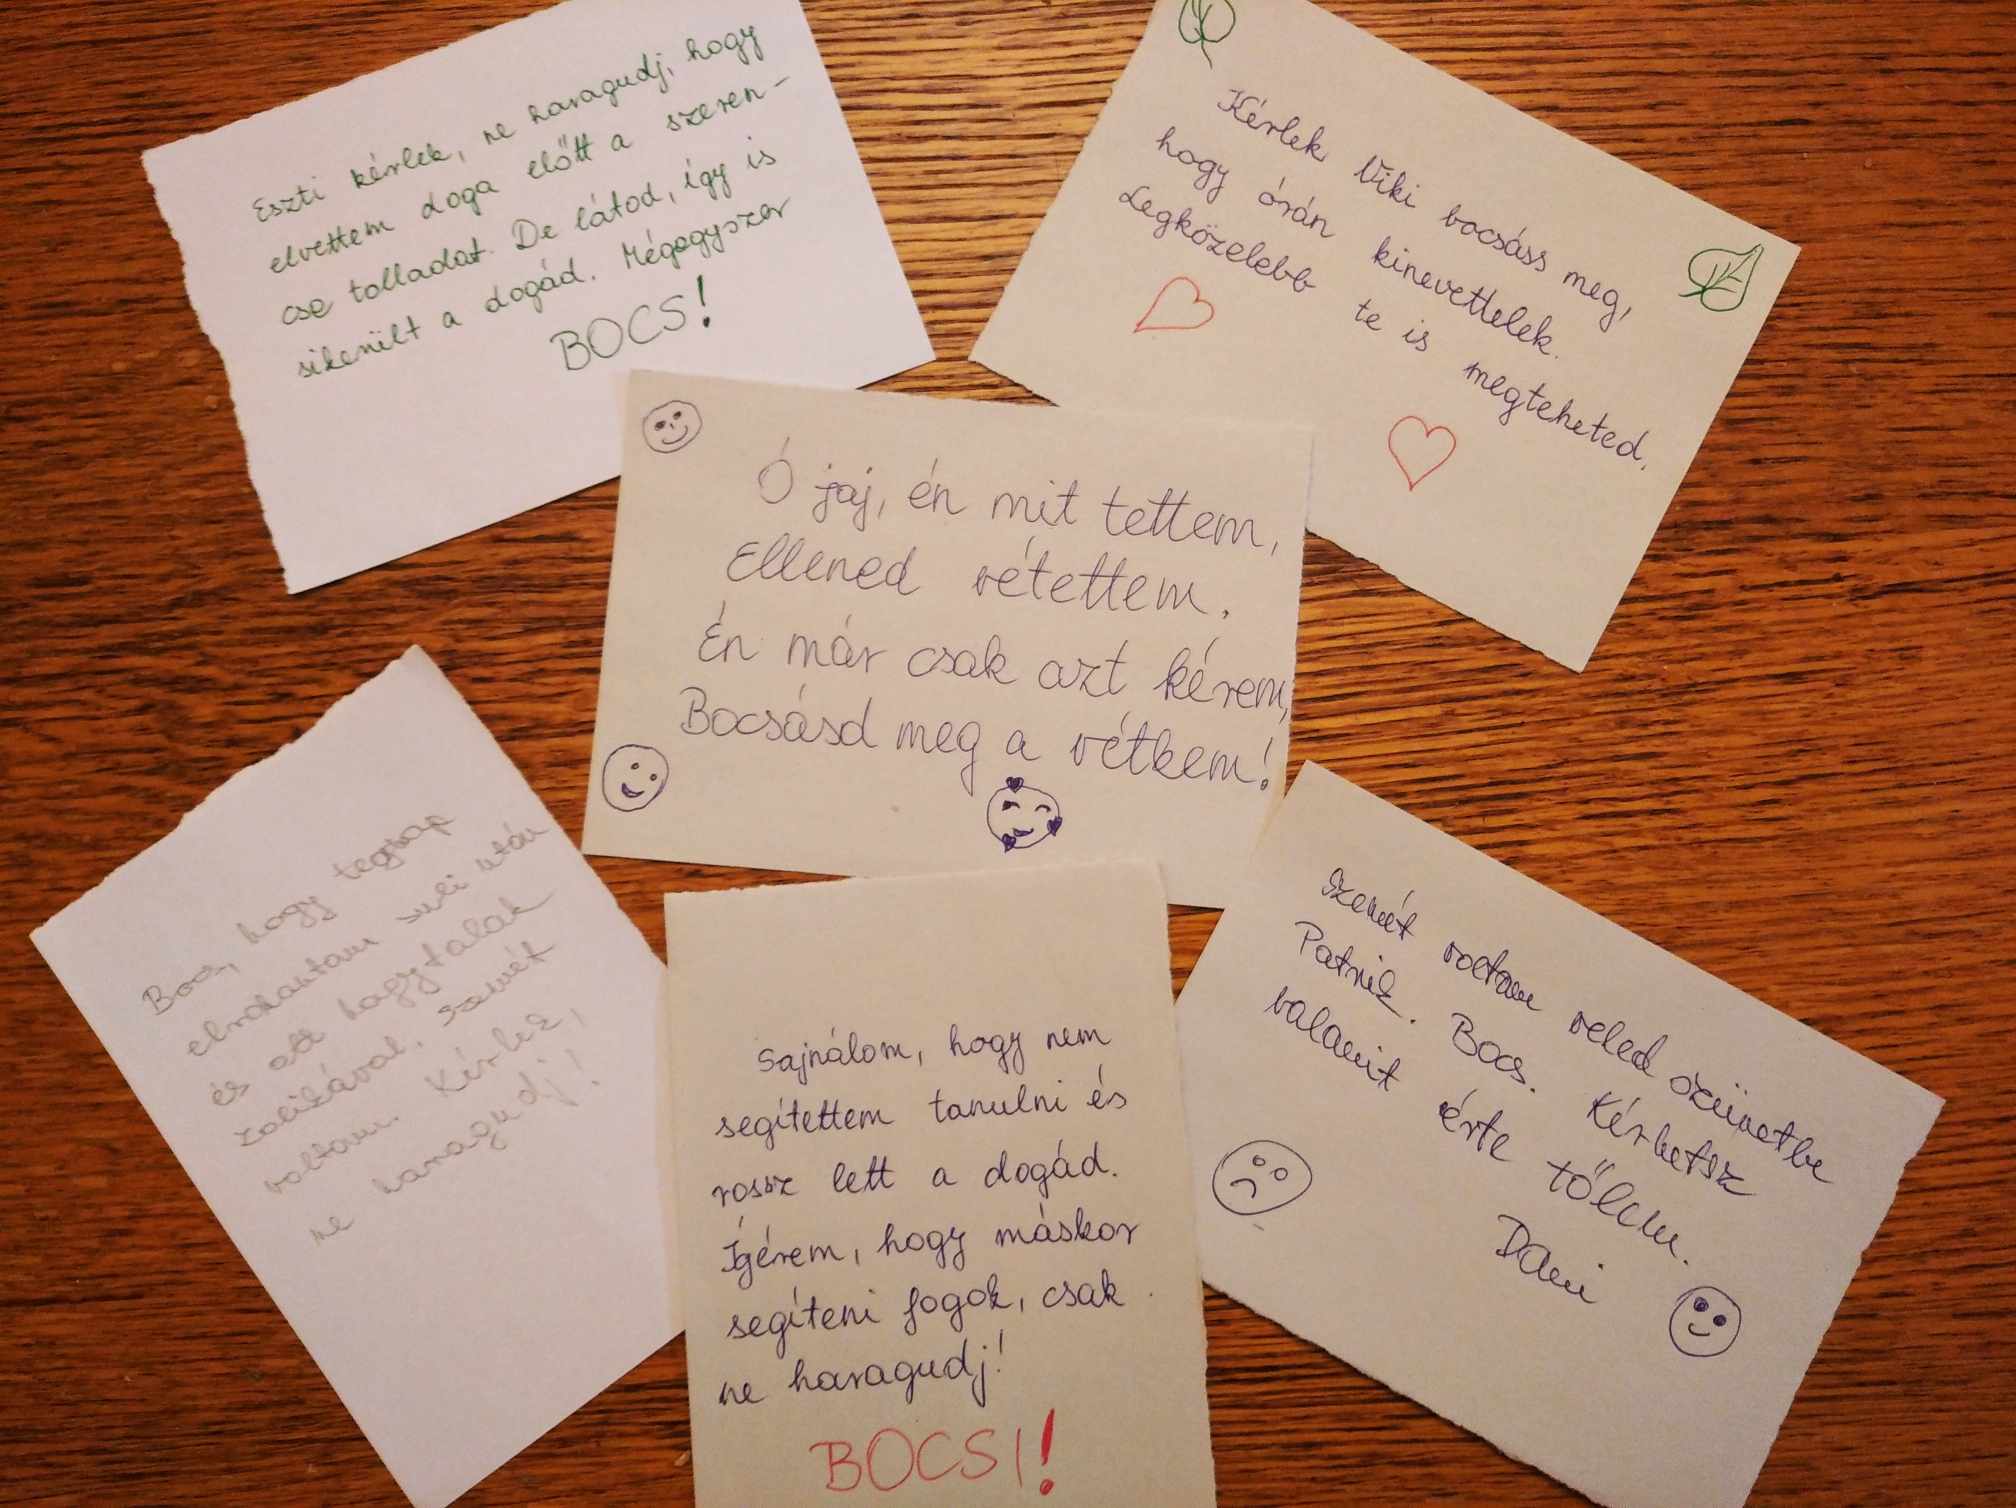 Eszti kérlek, ne haragudj, hogy
elvettem doga előtt a szeren-
cse tolladat. De látod, így is
sikerült a dogád. Mégegyszer
BOCS!
Kérlek Viki bocsáss meg,
hogy órán kinevettelek.
Legközelebb te is megteheted.
Ó jaj, én mit tettem,
Ellened vétettem.
Én már csak azt kérem,
Bocsásd meg a vétkem!
Bocs, hogy tegnap
elrohantam suli után
és ott hagytalak
Zolikával. Szemét
voltam. Kérlek,
ne haragudj!
Sajnálom, hogy nem
segítettem tanulni és
rossz lett a dogád.
Ígérem, hogy máskor
segíteni fogok, csak
ne haragudj!
BOCSI!
Szemét voltam veled szünetbe
Patrik. Bocs. Kérhetsz
valamit érte tőlem.
Dani